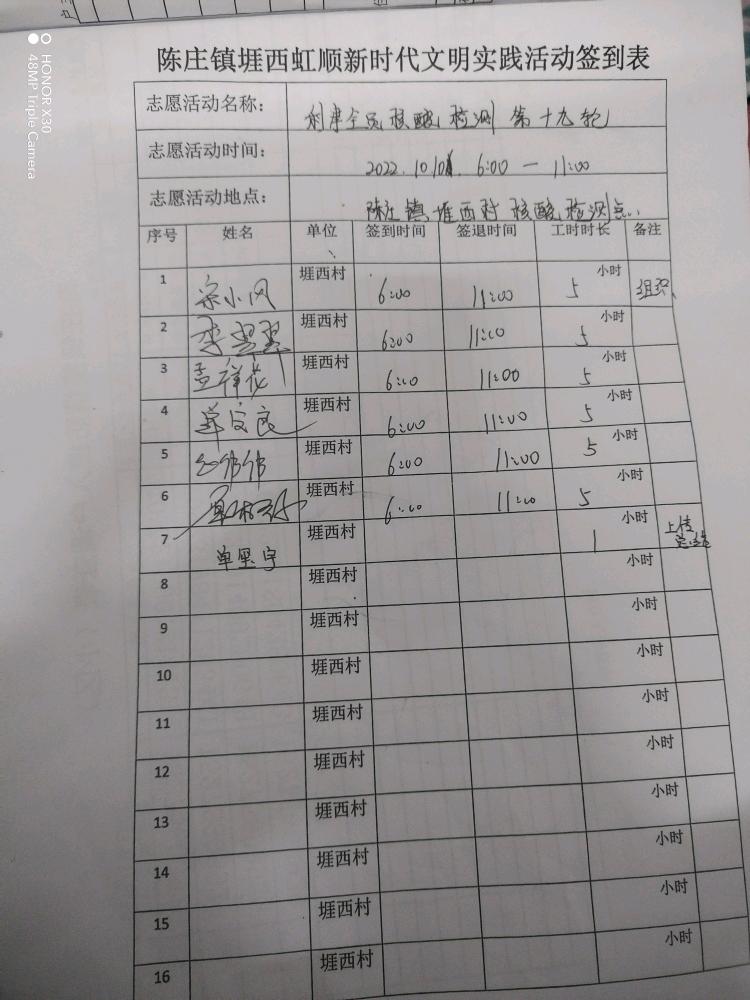 HONOR X30
48MP Triple Camera
陈庄镇堐西虹顺新时代文明实践活动签到表
志愿活动名称： 利津全员核酸检测 第十九轮
志愿活动时间： 6:00 — 11:00
志愿活动地点： 陈庄镇堐西村核酸检测点
序号 姓名 单位 签到时间 签退时间 工时时长 备注
1 小风 堐西村 6:00 11:00 5 小时 组织
2 李翠翠 堐西村 6:00 11:00 5 小时
3 孟祥花 堐西村 6:00 11:00 5 小时
4 良 堐西村 6:00 11:00 5 小时
5 堐西村 6:00 11:00 5 小时
6 堐西村 6:00 11:00 5 小时
7 单 宇 堐西村 1 小时 上传
8 堐西村 小时
9 堐西村 小时
10 堐西村 小时
11 堐西村 小时
12 堐西村 小时
13 堐西村 小时
14 堐西村 小时
15 堐西村 小时
16 堐西村 小时